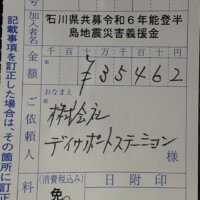 号
加入者名
石川県共募令和6年能登半
島地震災害義援金
金額
千百十万千百十円
¥35462
おなまえ
ご依頼人
株式会社
デイサポートステーション
様
料
(消費税込み)
免
日附印
記載事項を訂正した場合は、その箇所に訂正